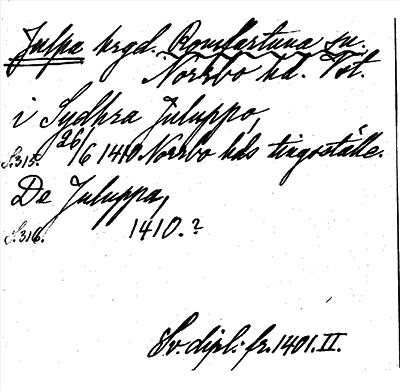 Julpa krgd. Romfartuna sn.
Norrbo hd. Vstl.
i Sydhra Juluppo,
S. 315. 26/6 1410. Norrbo hds tingställe.
De Juluppa,
S. 316. 1410.?
Sv. dipl. fr. 1401. II.